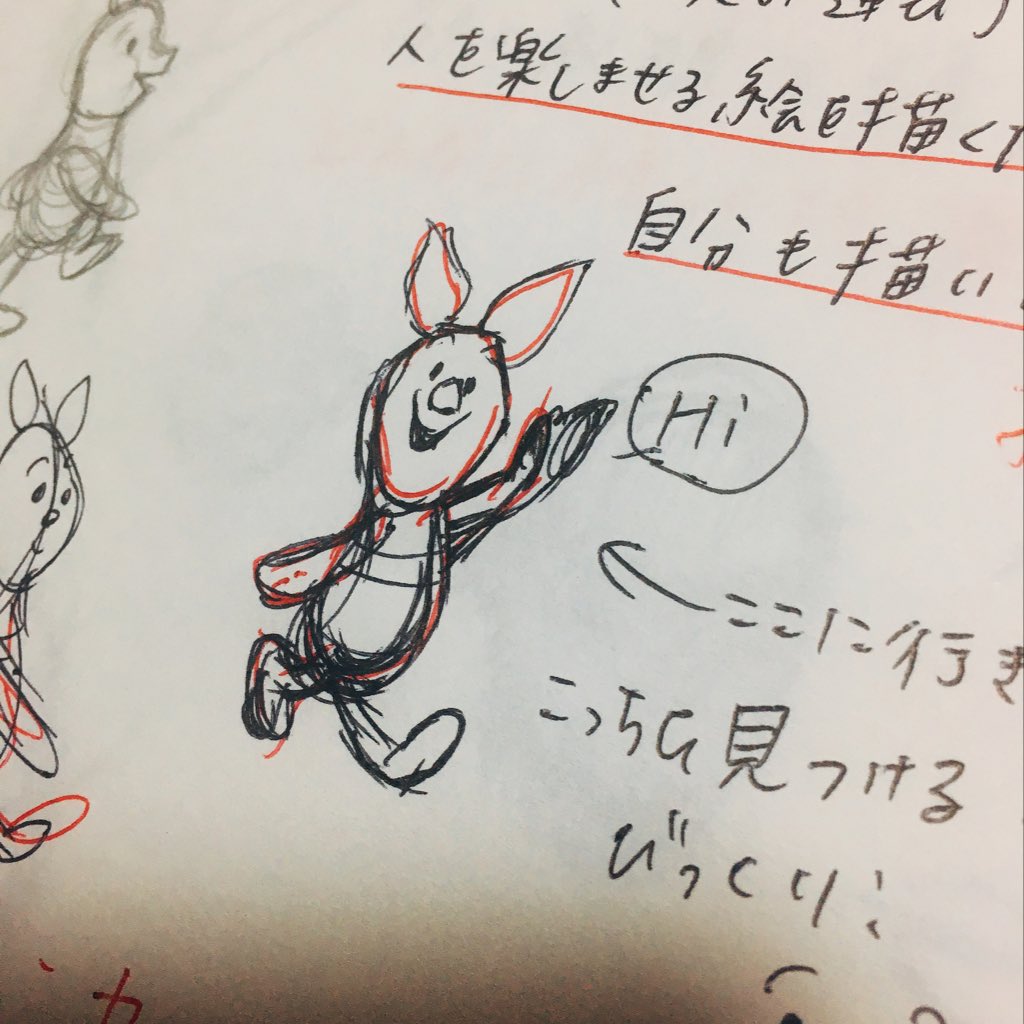 人を楽しませる絵を描く
自分も描い
Hi
ここに行き
こっちに見つける
びっくり!
カ